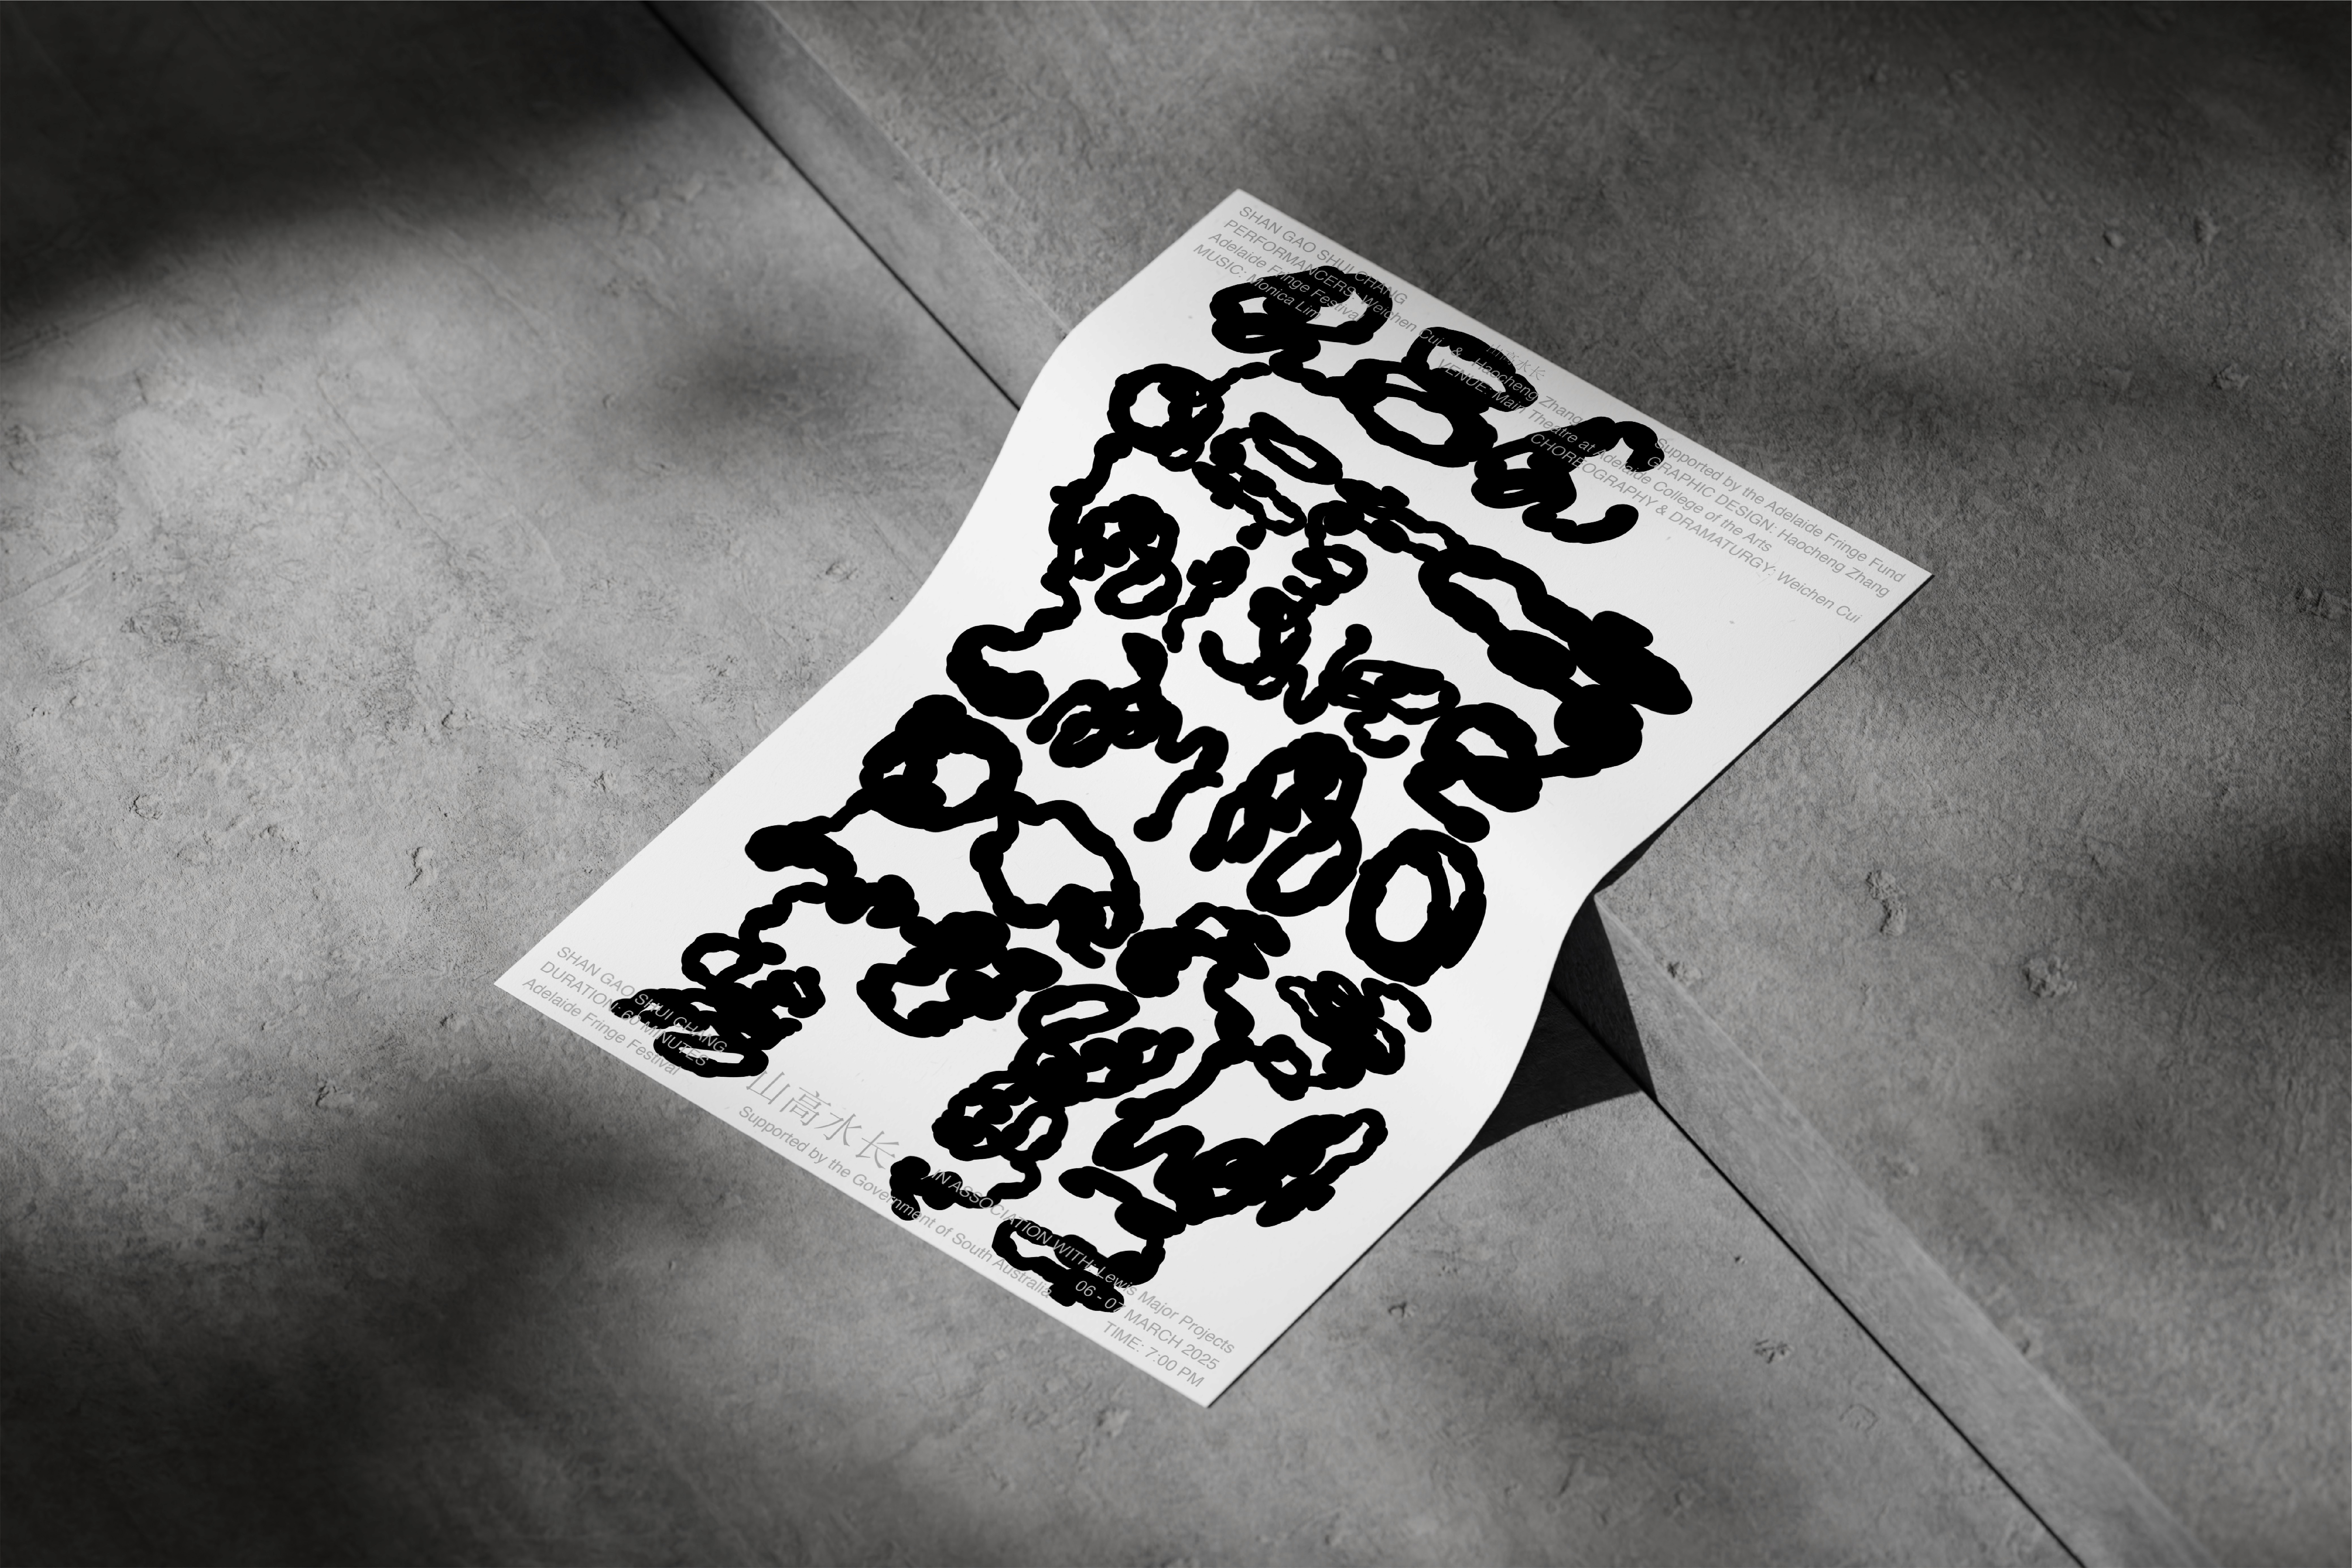 SHAN GAO SHUI CHANG
PERFORMANCERS: Weichen Cui & Haocheng Zhang
Adelaide Fringe Festival
MUSIC: Monica Lim
山高水长
VENUE: Main Theatre at Adelaide College of the Arts
Supported by the Adelaide Fringe Fund
GRAPHIC DESIGN: Haocheng Zhang
CHOREOGRAPHY & DRAMATURGY: Weichen Cui
SHAN GAO SHUI CHANG
DURATION: 60 MINUTES
Adelaide Fringe Festival
山高水长
Supported by the Government of South Australia
IN ASSOCIATION WITH: Lewis Major Projects
06 - 07 MARCH 2025
TIME: 7:00 PM